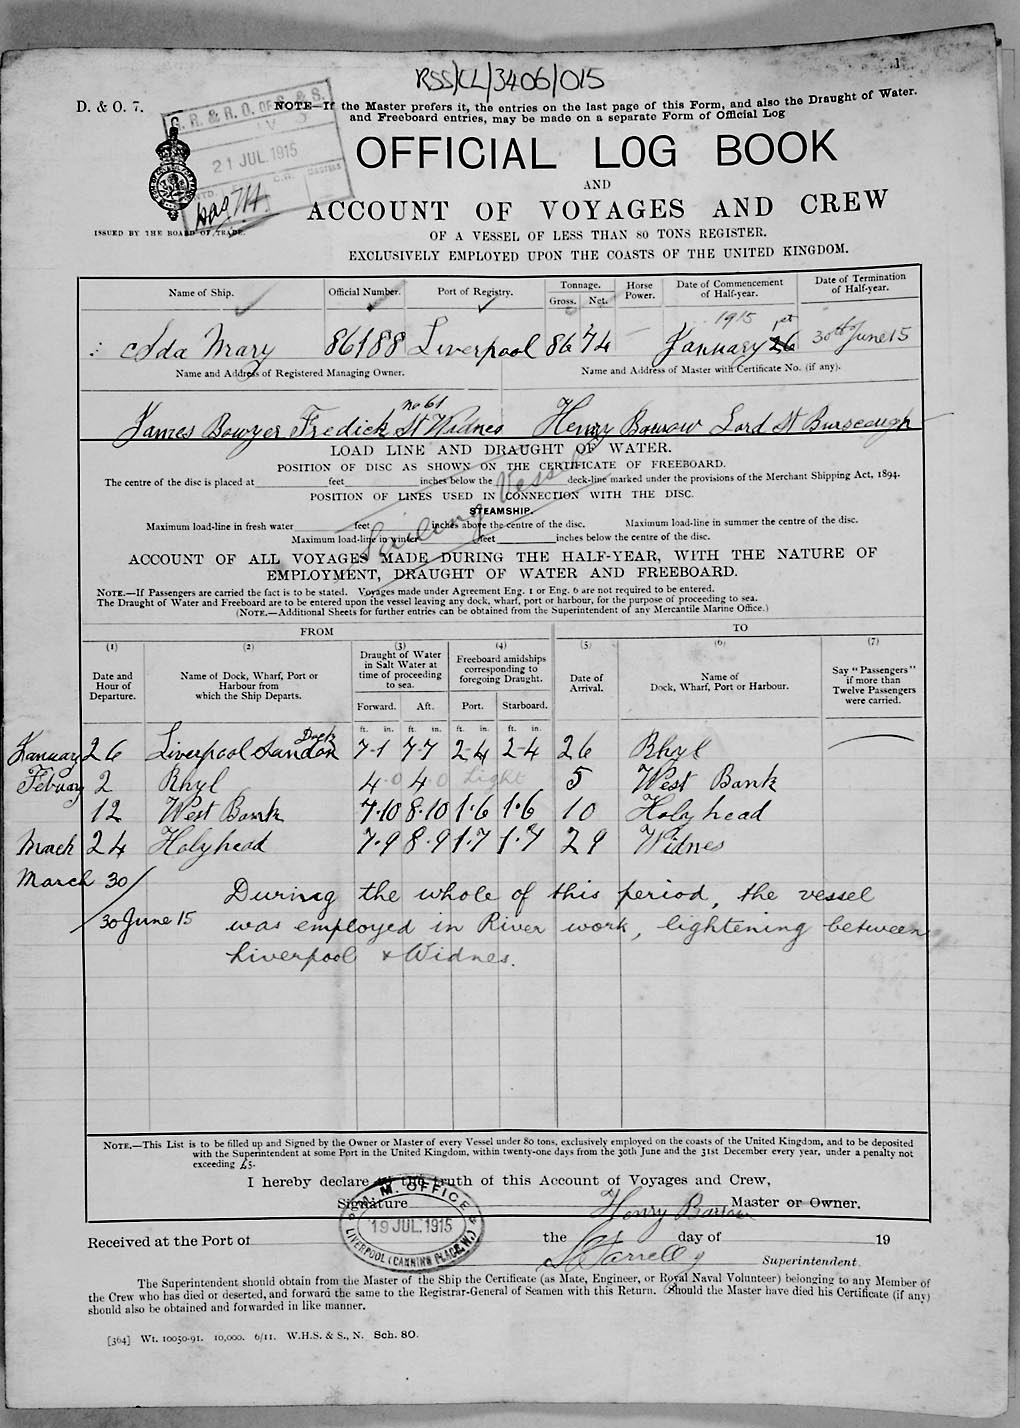 RSS/CL/3406/015
1
D. & O. 7.
G. R. & R. O. OF S. & S.
21 JUL 1915
NOTE—If the Master prefers it, the entries on the last page of this Form, and also the Draught of Water.
and Freeboard entries, may be made on a separate Form of Official Log
OFFICIAL LOG BOOK
AND
ACCOUNT OF VOYAGES AND CREW
ISSUED BY THE BOARD OF TRADE.
OF A VESSEL OF LESS THAN 80 TONS REGISTER.
EXCLUSIVELY EMPLOYED UPON THE COASTS OF THE UNITED KINGDOM.
Name of Ship. Official Number. Port of Registry. Tonnage. Gross. Net. Horse Power. Date of Commencement of Half-year. Date of Termination of Half-year.
1915
Ida Mary 86188 Liverpool 86 74 — January 1st 30th June 15
Name and Address of Registered Managing Owner. Name and Address of Master with Certificate No. (if any).
no 61
James Bowyer Fredick St Widnes Henry Barrow Lord St Burscough
LOAD LINE AND DRAUGHT OF WATER.
POSITION OF DISC AS SHOWN ON THE CERTIFICATE OF FREEBOARD.
The centre of the disc is placed at feet inches below the deck-line marked under the provisions of the Merchant Shipping Act, 1894.
POSITION OF LINES USED IN CONNECTION WITH THE DISC.
Sailing Vessel
STEAMSHIP.
Maximum load-line in fresh water feet inches above the centre of the disc. Maximum load-line in summer the centre of the disc.
Maximum load-line in winter feet inches below the centre of the disc.
ACCOUNT OF ALL VOYAGES MADE DURING THE HALF-YEAR, WITH THE NATURE OF
EMPLOYMENT, DRAUGHT OF WATER AND FREEBOARD.
NOTE.—If Passengers are carried the fact is to be stated. Voyages made under Agreement Eng. 1 or Eng. 6 are not required to be entered.
The Draught of Water and Freeboard are to be entered upon the vessel leaving any dock, wharf, port or harbour, for the purpose of proceeding to sea.
(NOTE.—Additional Sheets for further entries can be obtained from the Superintendent of any Mercantile Marine Office.)
FROM TO
(1) (2) (3) (4) (5) (6) (7)
Date and Hour of Departure. Name of Dock, Wharf, Port or Harbour from which the Ship Departs. Draught of Water in Salt Water at time of proceeding to sea. Freeboard amidships corresponding to foregoing Draught. Date of Arrival. Name of Dock, Wharf, Port or Harbour. Say "Passengers" if more than Twelve Passengers were carried.
Forward. Aft. Port. Starboard.
ft. in. ft. in. ft. in. ft. in.
January 26 Liverpool Sandon Dock 7-1 7-7 2-4 2-4 26 Rhyl
Febuary 2 Rhyl 4-0 4-0 Light 5 West Bank
12 West Bank 7-10 8-10 1-6 1-6 10 Holyhead
March 24 Holyhead 7-9 8-9 1-7 1-7 29 Widnes
March 30/ During the whole of this period, the vessel
/30 June 15 was employed in River work, lightening between
Liverpool & Widnes.
NOTE.—This List is to be filled up and Signed by the Owner or Master of every Vessel under 80 tons, exclusively employed on the coasts of the United Kingdom, and to be deposited
with the Superintendent at some Port in the United Kingdom, within twenty-one days from the 30th June and the 31st December every year, under a penalty not
exceeding £5.
I hereby declare to the truth of this Account of Voyages and Crew,
Signature Henry Barrow Master or Owner.
M. M. OFFICE
19 JUL 1915
LIVERPOOL (CANNING PLACE, W.)
Received at the Port of the day of 19
Farrelly Superintendent.
The Superintendent should obtain from the Master of the Ship the Certificate (as Mate, Engineer, or Royal Naval Volunteer) belonging to any Member of
the Crew who has died or deserted, and forward the same to the Registrar-General of Seamen with this Return. Should the Master have died his Certificate (if any)
should also be obtained and forwarded in like manner.
[364] Wt. 10050-91. 10,000. 6/11. W.H.S. & S., N. Sch. 80.